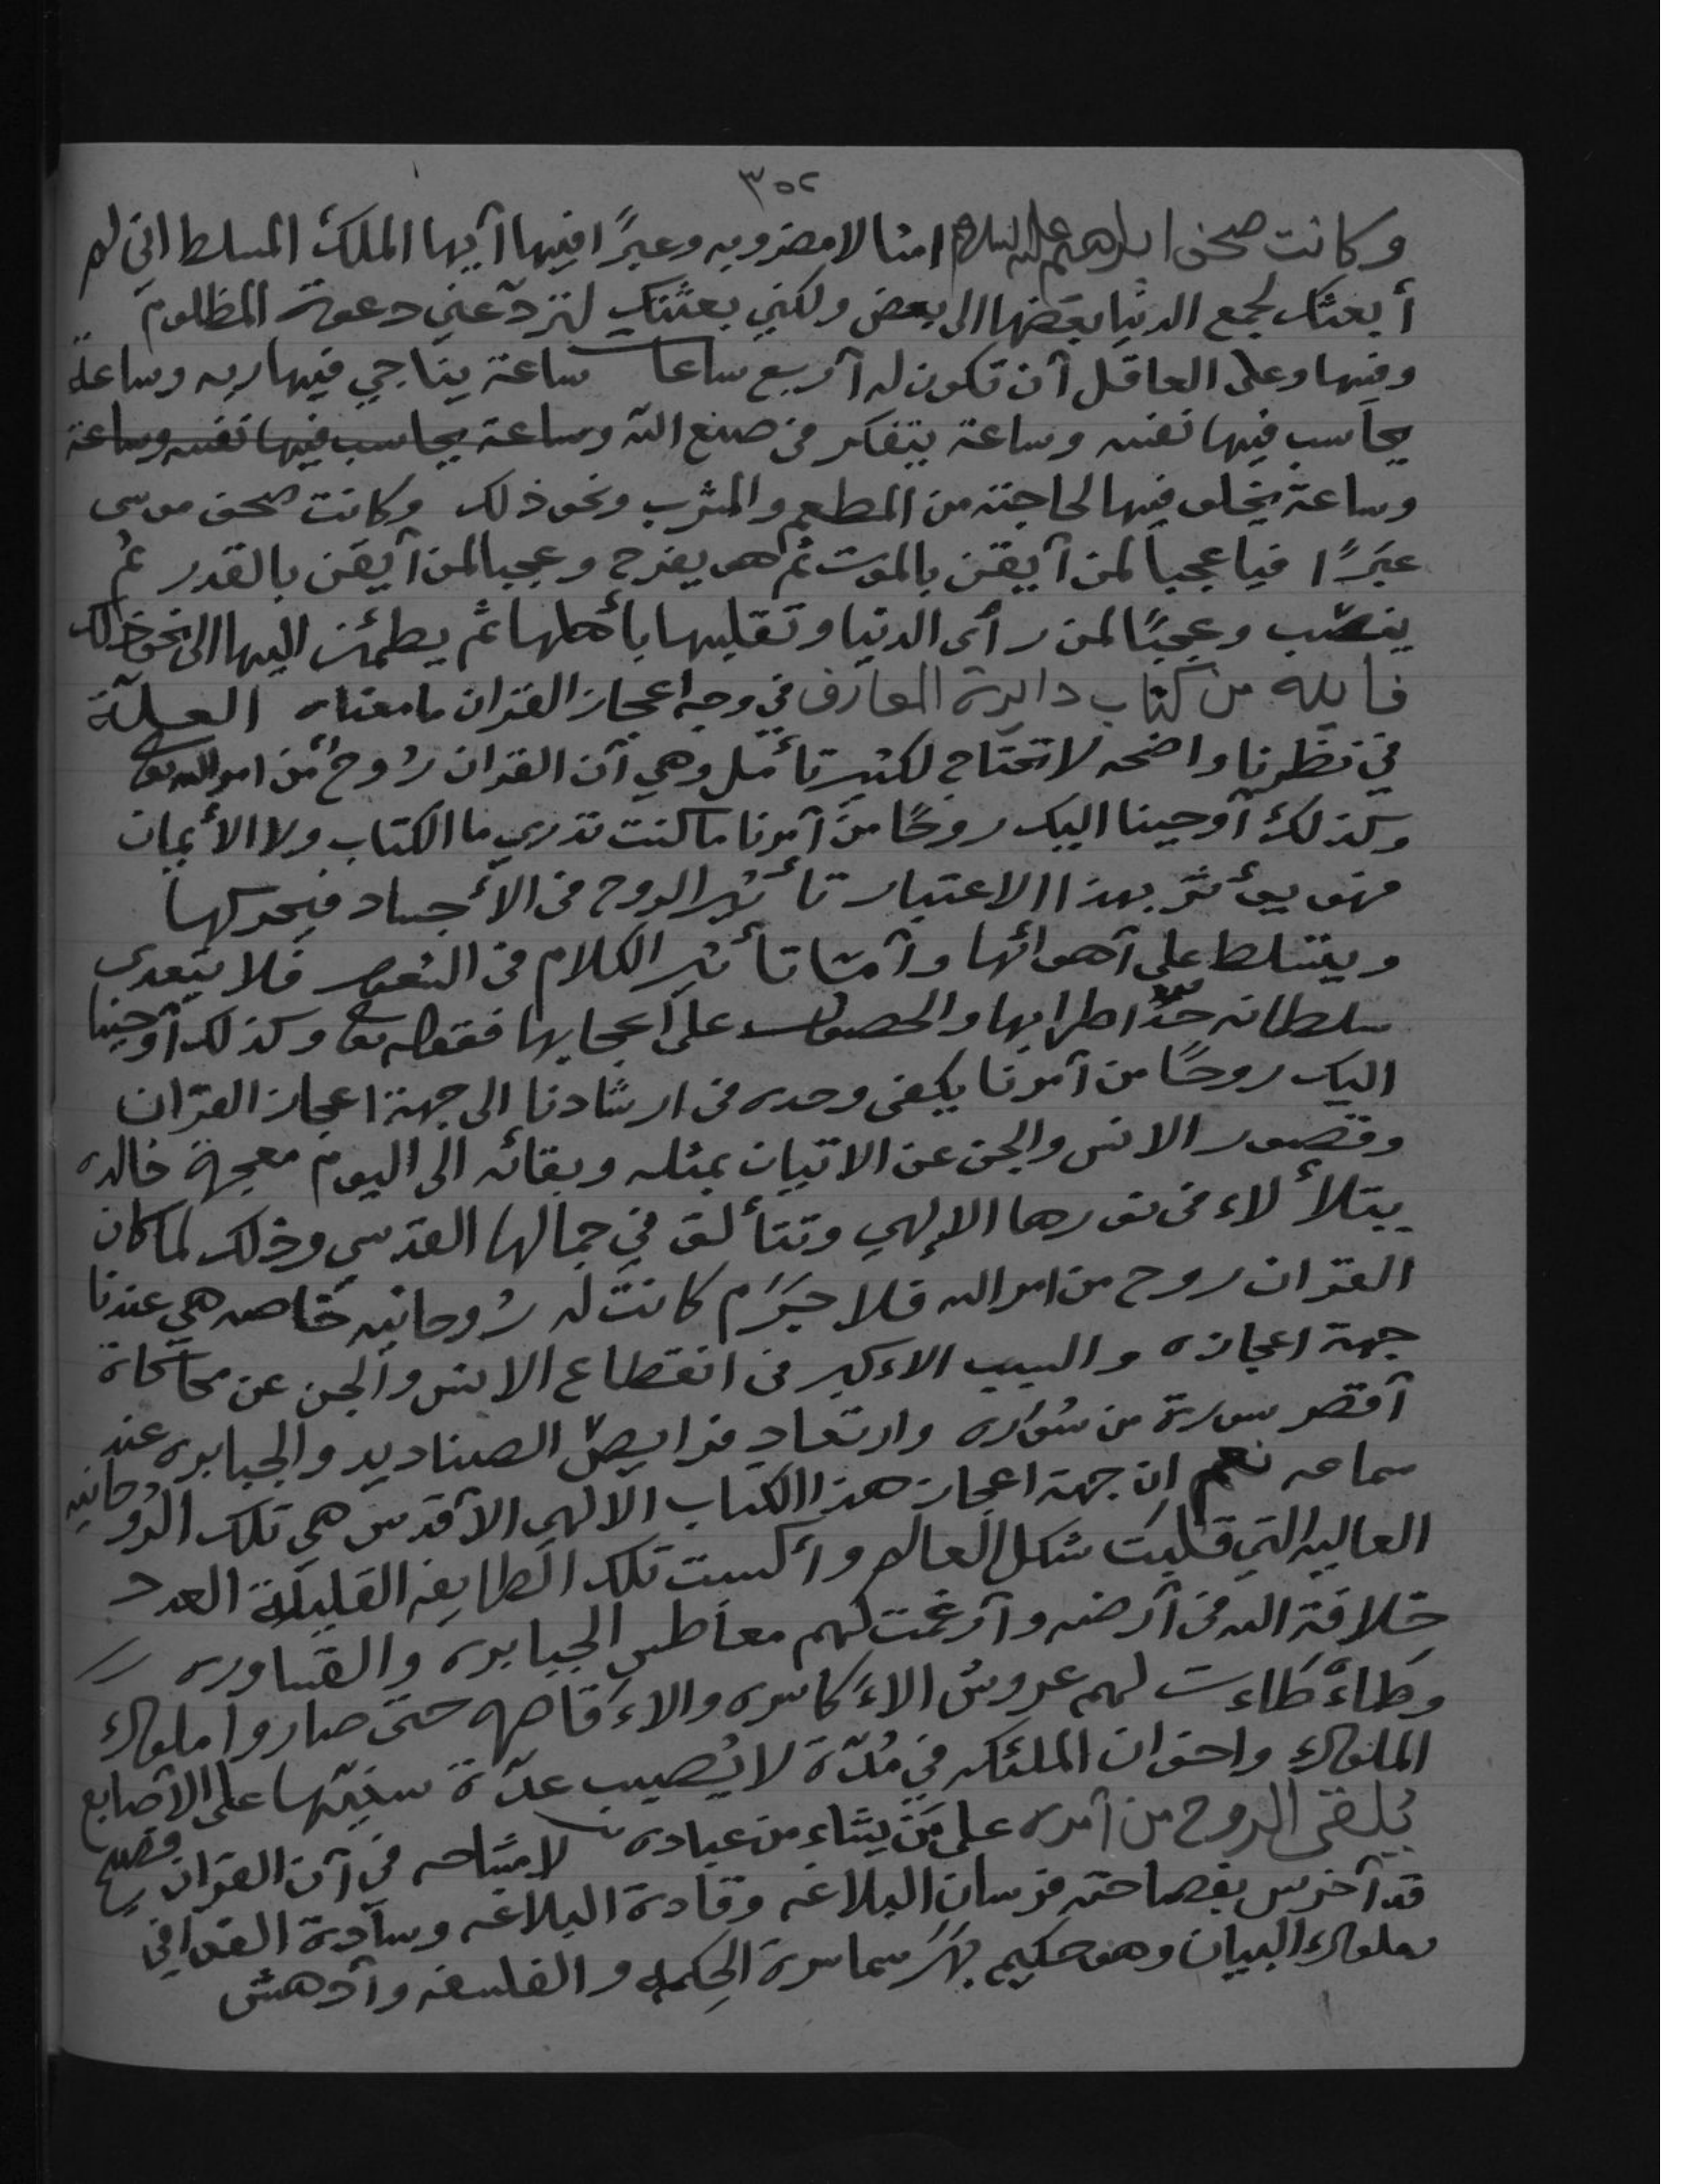 ٣٥٢
وكانت صحف ابراهيم عليه السلام امثالا مضروبه وعبرًا فيها آيها الملك المسلط اني لم
أبعثك لجمع الدنيا بعضها الى بعض ولكني بعثتك لترد عني دعوة المظلوم
وفيها وعلى العاقل آن تكون له آربع ساعات ساعة يناجي فيها ربه وساعة
يحاسب فيها نفسه وساعة يتفكر في صنع الله وساعة يحاسب فيها نفسه وساعة
وساعة يخلو فيها لحاجته من المطعم والمشرب ونحو ذلك وكانت صحف موسى
عبَرًا فيا عجبا لمن آيقن بالموت ثم هو يفرح وعجبا لمن آيقن بالقدر ثم
ينصَب وعجبًا لمن رأى الدنيا وتقلبها بأهلها ثم يطمئن اليها الى نحو ذلك
فايده من كتاب دايرة المعارف في وجه اعجاز القران ما معناه العلّة
في نظرنا واضحه لا تحتاج لكثير تأمل وهي آن القران رُوحٌ من امر الله تعا
وكذلك آوحينا اليك روحًا من آمرنا ما كنت تدري ما الكتاب ولا الأيمان
فهو يوءثر بهذا الاعتبار تأثير الروح في الأجساد فيحركها
ويتسلط على آهوائها وآما تأثير الكلام في الشعور فلا يتعدى
سلطانه حدّ اطرابها والحصول على اعجابها فقوله تعا وكذلك آوحينا
اليك روحًا من آمرنا يكفي وحده في ارشادنا الى جهة اعجاز القرآن
وقصور الانس والجن عن الاتيان بمثله وبقائه الى اليوم معجزة خالده
يتلألاء في نورها الإلهي وتتألق في جمالها القدسي وذلك لما كان
القران روح من امر الله فلا جَرَم كانت له رُوحانيه خاصه هي عندنا
جهة اعجازه والسبب الاءكبر في انقطاع الانس والجن عن محاكاة
آقصر سورة من سُوَره وارتعاد فرايص الصناديد والجبابره عند
سماعه نعم ان جهة اعجاز هذا الكتاب الالهي الآقدس هي تلك الرُوحانيه
العاليه التي قلبت شكل العالم وأكسبت تلك الطايفه القليلة العدد
خلافة الله في آرضه وآرغمت لهم معاطس الجبابره والقساوره
وطاءطاءت لهم عروش الاءكاسره والاءقاصره حتى صاروا ملوك
الملوك واخوان الملئكه في مُدّة لا يُصيب عدّة سنيّها على الآصابع
يُلقي الروح من آمره على مَن يشاء من عباده لا مشاحه في آن القران فصيح
قد آخرس بفصاحته فرسان البلاغه وقادة البلاغه وسآدة القوافي
وملوك البيان وهو حكيم بهَرَ سماسرة الحِكمه والفلسفه وآدهش